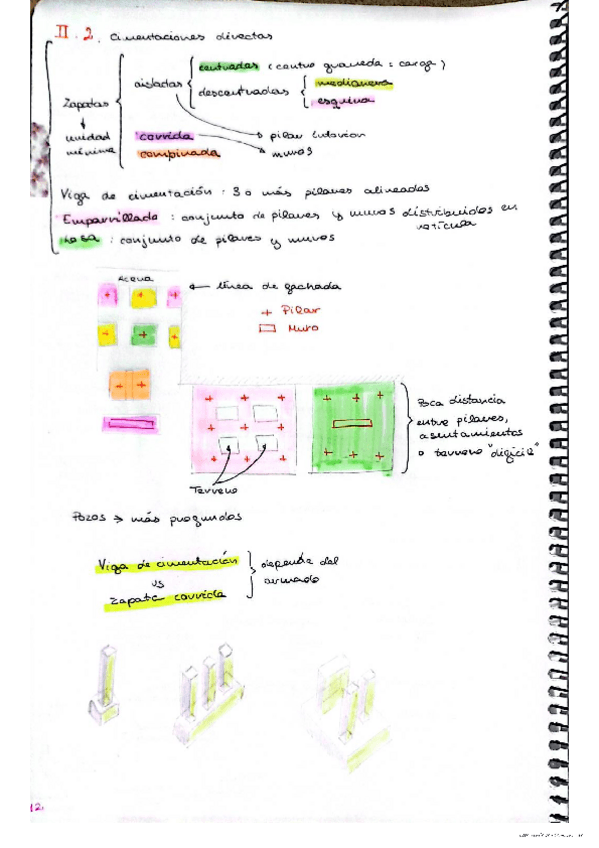 II.2. Cimentaciones directas
Zapatas
↓
unidad
mínima
aisladas
centradas (centro gravedad = carga)
descentradas
medianera
esquina
corrida → pilar
combinada → muros
Viga de cimentación : 3 o más pilares alineados
Emparrillado : conjunto de pilares y muros distribuidos en
retícula
Losa : conjunto de pilares y muros
← línea de fachada
+ Pilar
Muro
Poca distancia
entre pilares,
asentamientos
o terreno "difícil"
Terreno
Pozos → más profundos
Viga de cimentación
vs
zapata corrida
depende del
armado
12.